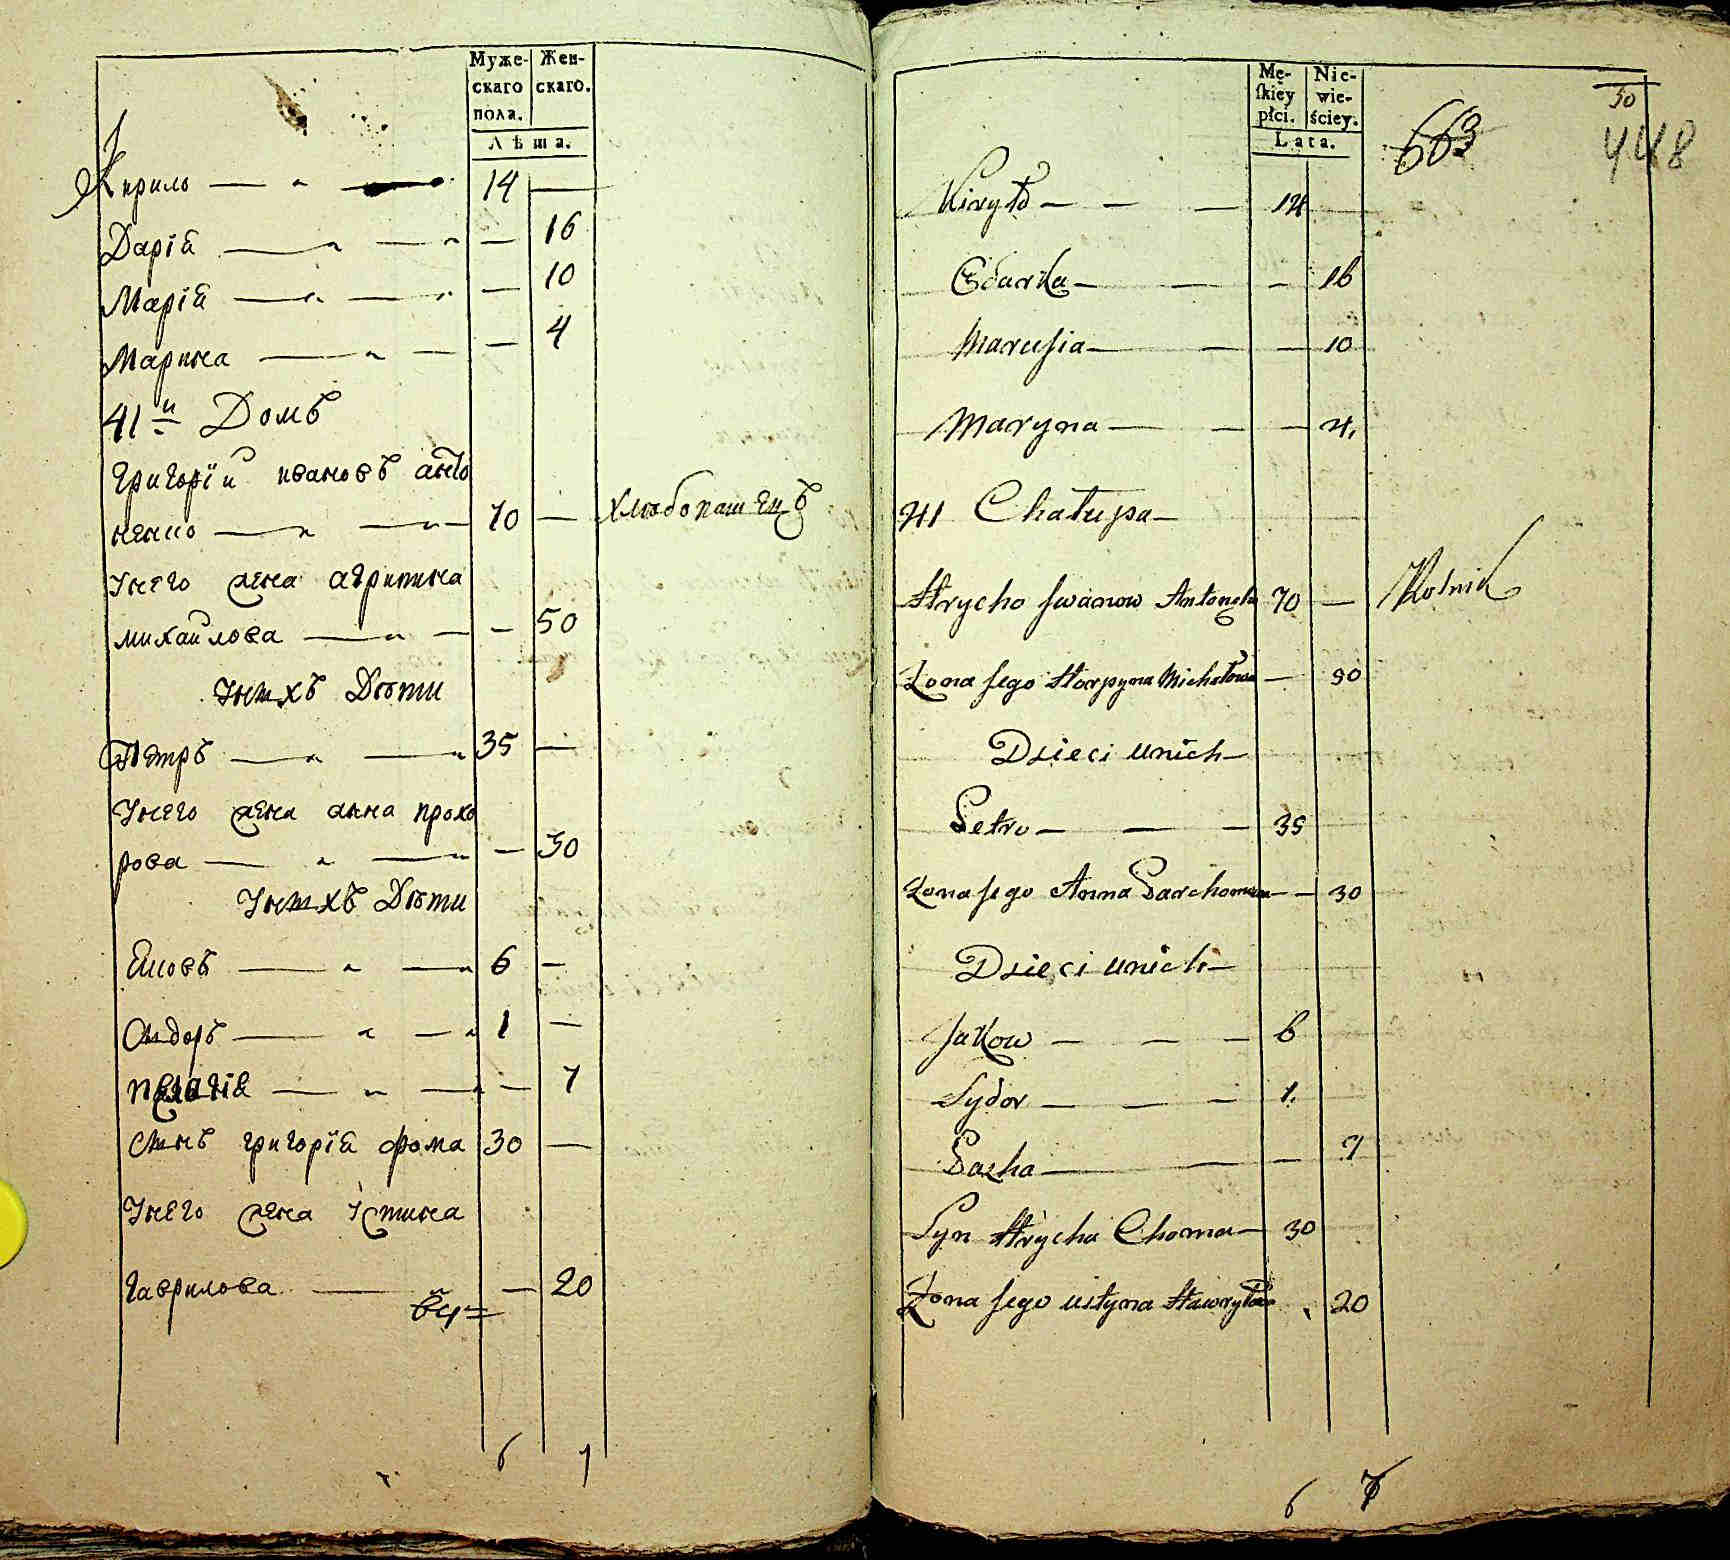 Муже-
скаго
пола.
Жен-
скаго.
Лѣта.
Кирило — „ — 14 —
Дарія — „ — „ — 16
Марія — „ — „ — 10
Марина — „ — — 4
41й Домъ
Григорій ивановъ анто
ненко — „ — „ — 70 — хлѣбопашецъ
Унего жена агрипина
михайлова — „ — — 50
Унихъ Дѣти
Петръ — „ — „ 35 —
Унего жена анна прохо
рова — „ — „ — 30
Унихъ Дѣти
Яковъ — „ — „ 6 —
Сидоръ — „ — „ 1 —
пелагія — „ — „ — 7
Сынъ григорія фома 30 —
Унего жена Устина
гаврилова — „ — 20
6 7
Mę-
skiey
płci.
Nie-
wie-
ściey.
Lata.
50
663
448
Kiryło — — — 14 —
Odarka — — — 16
Marusia — — — 10
Maryna — — — 4.
41 Chałupa —
Hrycho Iwanow Antonenko 70 — Rolnik
Żona Jego Horpyna Michałowa — 50
Dzieci unich —
Petro — — — 35
Żona Jego Anna Parchomowa — — 30
Dzieci unich —
Jakow — — — 6
Sydor — — — 1.
Pazka — — — 7
Syn Hrycha Choma — 30
Żona Jego Ustyna Hawryłowa 20
6 7